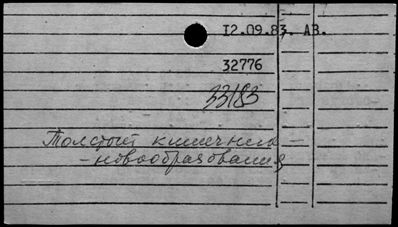 12.09.83. АВ.
32776
33183
Толстый кишечник –
– новообразования